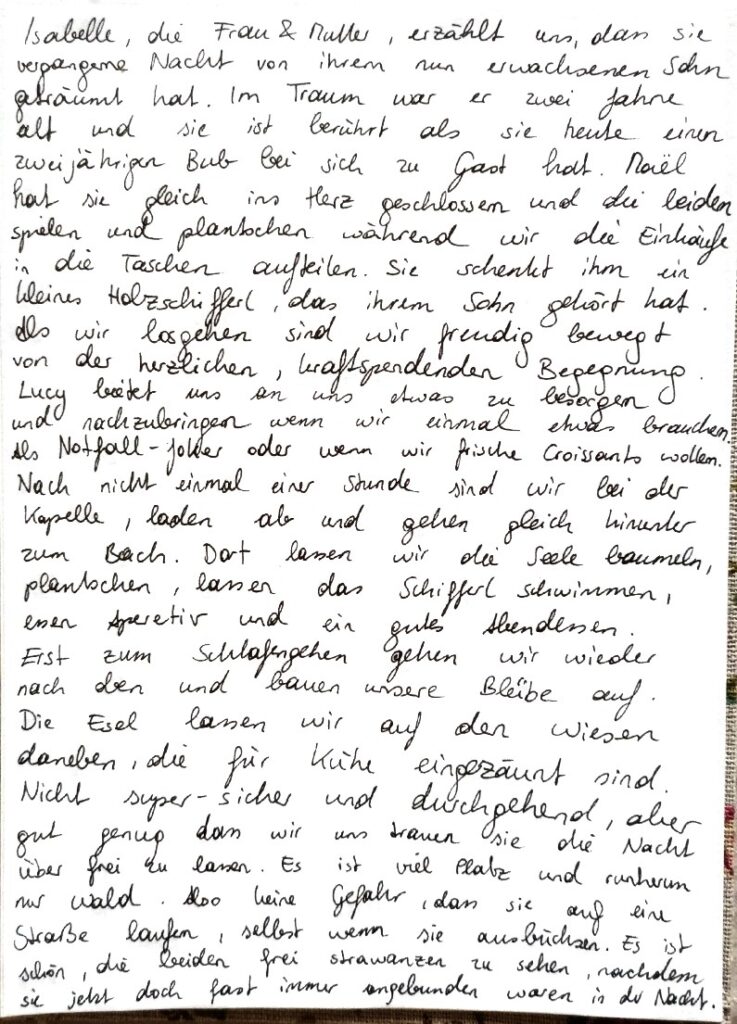 Isabelle, die Frau & Mutter, erzählt uns, dass sie
vergangene Nacht von ihrem nun erwachsenen Sohn
geträumt hat. Im Traum war er zwei Jahre
alt und sie ist berührt als sie heute einen
zweijährigen Bub bei sich zu Gast hat. Maël
hat sie gleich ins Herz geschlossen und die beiden
spielen und plantschen während wir die Einkäufe
in die Taschen aufteilen. Sie schenkt ihm ein
kleines Holzschifferl, das ihrem Sohn gehört hat.
Als wir losgehen sind wir freudig bewegt
von der herzlichen, kraftspendenden Begegnung.
Lucy bietet uns an uns etwas zu besorgen
und nachzubringen wenn wir einmal etwas brauchen.
Als Notfall-Joker oder wenn wir frische Croissants wollen.
Nach nicht einmal einer Stunde sind wir bei der
Kapelle, laden ab und gehen gleich hinunter
zum Bach. Dort lassen wir die Seele baumeln,
plantschen, lassen das Schifferl schwimmen,
essen Aperetiv und ein gutes Abendessen.
Erst zum Schlafengehen gehen wir wieder
nach oben und bauen unsere Bleibe auf.
Die Esel lassen wir auf den Wiesen
daneben, die für Kühe eingezäunt sind.
Nicht super-sicher und durchgehend, aber
gut genug dass wir uns trauen sie die Nacht
über frei zu lassen. Es ist viel Platz und rundherum
nur Wald. Also keine Gefahr, dass sie auf eine
Straße laufen, selbst wenn sie ausbüchsen. Es ist
schön, die beiden frei strawanzen zu sehen, nachdem
sie jetzt doch fast immer angebunden waren in der Nacht.